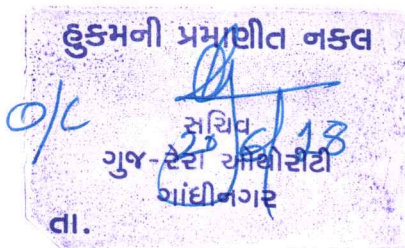 હુકમની પ્રમાણીત નકલ
O/C
સચિવ
20/6/18
ગુજ-રેરા ઓથોરીટી
ગાંધીનગર
તા.